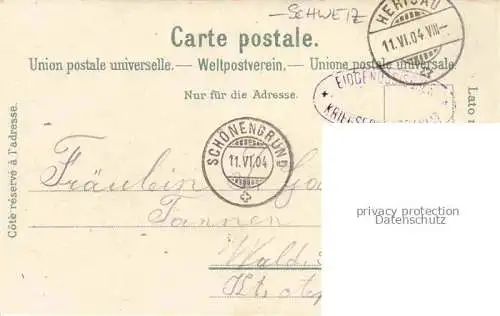 SCHWEIZ
HERISAU
11.VI.04.VIII
Carte postale.
Union postale universelle. — Weltpostverein. — Unione postale universale.
Nur für die Adresse.
Côté réservé à l'adresse.
Lato
SCHÖNENGRUND
11.VI.04
Fräulein
Tannen
Wald
Kt.
privacy protection
Datenschutz